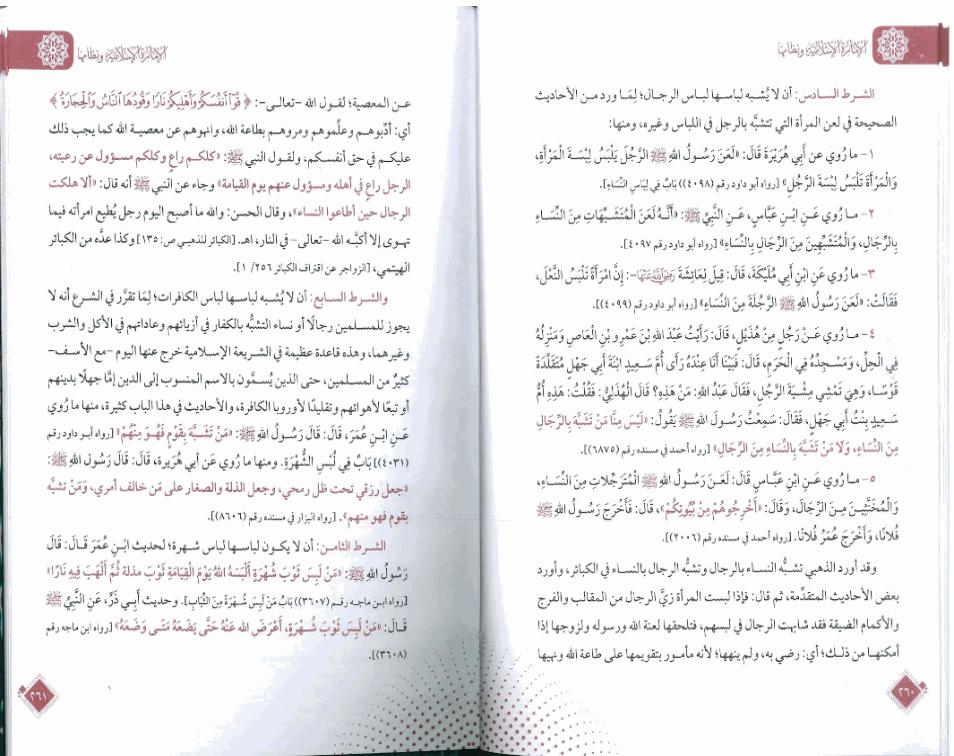 الإمارة الإسلامية ونظامها
الشرط السادس: أن لا يُشبه لباسها لباس الرجال؛ لِمَا ورد من الأحاديث
الصحيحة في لعن المرأة التي تتشبَّه بالرجل في اللباس وغيره، ومنها:
١- ما رُوي عن أَبِي هُرَيْرَةَ قَالَ: «لَعَنَ رَسُولُ اللهِ ﷺ الرَّجُلَ يَلْبَسُ لِبْسَةَ الْمَرْأَةِ،
وَالْمَرْأَةَ تَلْبَسُ لِبْسَةَ الرَّجُلِ» [رواه أبو داود رقم (٤٠٩٨)) بَابٌ فِي لِبَاسِ النِّسَاءِ].
٢- ما رُوي عَنِ ابْنِ عَبَّاسٍ، عَنِ النَّبِيِّ ﷺ: «أَنَّهُ لَعَنَ الْمُتَشَبِّهَاتِ مِنَ النِّسَاءِ
بِالرِّجَالِ، وَالْمُتَشَبِّهِينَ مِنَ الرِّجَالِ بِالنِّسَاءِ» [رواه أبو داود رقم ٤٠٩٧].
٣- ما رُوي عَنِ ابْنِ أَبِي مُلَيْكَةَ، قَالَ: قِيلَ لِعَائِشَةَ رَضِيَ اللَّهُ عَنْهَا-: إِنَّ امْرَأَةً تَلْبَسُ النَّعْلَ،
فَقَالَتْ: «لَعَنَ رَسُولُ اللهِ ﷺ الرَّجُلَةَ مِنَ النِّسَاءِ» [رواه أبو داود رقم (٤٠٩٩)].
٤- ما رُوي عَنْ رَجُلٍ مِنْ هُذَيْلٍ، قَالَ: رَأَيْتُ عَبْدَ اللهِ بْنَ عَمْرِو بْنِ الْعَاصِ وَمَنْزِلُهُ
فِي الْحِلِّ، وَمَسْجِدُهُ فِي الْحَرَمِ، قَالَ: فَبَيْنَا أَنَا عِنْدَهُ رَأَى أُمَّ سَعِيدٍ ابْنَةَ أَبِي جَهْلٍ مُتَقَلِّدَةً
قَوْسًا، وَهِيَ تَمْشِي مِشْيَةَ الرَّجُلِ، فَقَالَ عَبْدُ اللهِ: مَنْ هَذِهِ؟ قَالَ الْهُذَلِيُّ: فَقُلْتُ: هَذِهِ أُمُّ
سَعِيدٍ بِنْتُ أَبِي جَهْلٍ، فَقَالَ: سَمِعْتُ رَسُولَ اللهِ ﷺ يَقُولُ: «لَيْسَ مِنَّا مَنْ تَشَبَّهَ بِالرِّجَالِ
مِنَ النِّسَاءِ، وَلَا مَنْ تَشَبَّهَ بِالنِّسَاءِ مِنَ الرِّجَالِ» [رواه أحمد في مسنده رقم (٦٨٧٥)].
٥- ما رُوي عَنِ ابْنِ عَبَّاسٍ قَالَ: لَعَنَ رَسُولُ اللهِ ﷺ الْمُتَرَجِّلَاتِ مِنَ النِّسَاءِ،
وَالْمُخَنَّثِينَ مِنَ الرِّجَالِ، وَقَالَ: «أَخْرِجُوهُمْ مِنْ بُيُوتِكُمْ»، قَالَ: فَأَخْرَجَ رَسُولُ اللهِ ﷺ
فُلَانًا، وَأَخْرَجَ عُمَرُ فُلَانًا. [رواه أحمد في مسنده رقم (٢٠٠٦)].
وقد أورد الذهبي تشبُّه النساء بالرجال وتشبُّه الرجال بالنساء في الكبائر، وأورد
بعض الأحاديث المتقدِّمة، ثم قال: فإذا لبست المرأة زيَّ الرجال من المقالب والفرج
والأكمام الضيقة فقد شابهت الرجال في لبسهم، فتلحقها لعنة الله ورسوله ولزوجها إذا
أمكنها من ذلك؛ أي: رضي به، ولم ينهها؛ لأنه مأمور بتقويمها على طاعة الله ونهيها
٢٦٠
الإمارة الإسلامية ونظامها
عن المعصية؛ لقول الله -تعالى-: ﴿قُوٓاْ أَنفُسَكُمۡ وَأَهۡلِيكُمۡ نَارٗا وَقُودُهَا ٱلنَّاسُ وَٱلۡحِجَارَةُ﴾
أي: أدِّبوهم وعلِّموهم ومروهم بطاعة الله، وانهوهم عن معصية الله كما يجب ذلك
عليكم في حق أنفسكم، ولقول النبي ﷺ: «كلكم راعٍ وكلكم مسؤول عن رعيته،
الرجل راعٍ في أهله ومسؤول عنهم يوم القيامة» وجاء عن النبي ﷺ أنه قال: «ألا هلكت
الرجال حين أطاعوا النساء»، وقال الحسن: والله ما أصبح اليوم رجل يُطيع امرأته فيما
تهوى إلا أكبَّه الله -تعالى- في النار، اهـ. [الكبائر للذهبي ص: ١٣٥] وكذا عدَّه من الكبائر
الهيتمي، [الزواجر عن اقتراف الكبائر ٢٥٦/ ١].
والشرط السابع: أن لا يُشبه لباسها لباس الكافرات؛ لِمَا تقرَّر في الشرع أنه لا
يجوز للمسلمين رجالًا أو نساء التشبُّه بالكفار في أزيائهم وعاداتهم في الأكل والشرب
وغيرهما، وهذه قاعدة عظيمة في الشريعة الإسلامية خرج عنها اليوم -مع الأسف-
كثيرٌ من المسلمين، حتى الذين يُسمَّون بالاسم المنسوب إلى الدين إمَّا جهلًا بدينهم
أو تبعًا لأهوائهم وتقليدًا لأوروبا الكافرة، والأحاديث في هذا الباب كثيرة، منها ما رُوي
عَنِ ابْنِ عُمَرَ، قَالَ: قَالَ رَسُولُ اللهِ ﷺ: «مَنْ تَشَبَّهَ بِقَوْمٍ فَهُوَ مِنْهُمْ» [رواه أبو داود رقم
(٤٠٣١)] بَابٌ فِي لُبْسِ الشُّهْرَةِ. ومنها ما رُوي عن أبي هُريرة، قَالَ: قَالَ رَسُولُ اللهِ ﷺ:
«جعل رزقي تحت ظل رمحي، وجعل الذلة والصغار على مَن خالف أمري، وَمَنْ تشبَّه
بقوم فهو منهم». [رواه البزار في مسنده رقم (٨٦٠٦)].
الشرط الثامن: أن لا يكون لباسها لباس شهرة؛ لحديث ابْنِ عُمَرَ قَالَ: قَالَ
رَسُولُ اللهِ ﷺ: «مَنْ لَبِسَ ثَوْبَ شُهْرَةٍ أَلْبَسَهُ اللهُ يَوْمَ الْقِيَامَةِ ثَوْبَ مذلة ثُمَّ أَلْهَبَ فِيهِ نَارًا»
[رواه ابن ماجه رقم (٣٦٠٧)) بَابُ مَنْ لَبِسَ شُهْرَةً مِنَ الثِّيَابِ]. وحديث أَبِي ذَرٍّ، عَنِ النَّبِيِّ ﷺ
قَالَ: «مَنْ لَبِسَ ثَوْبَ شُهْرَةٍ، أَعْرَضَ اللهُ عَنْهُ حَتَّى يَضَعَهُ مَتَى وَضَعَهُ» [رواه ابن ماجه رقم
(٣٦٠٨)].
٢٦١